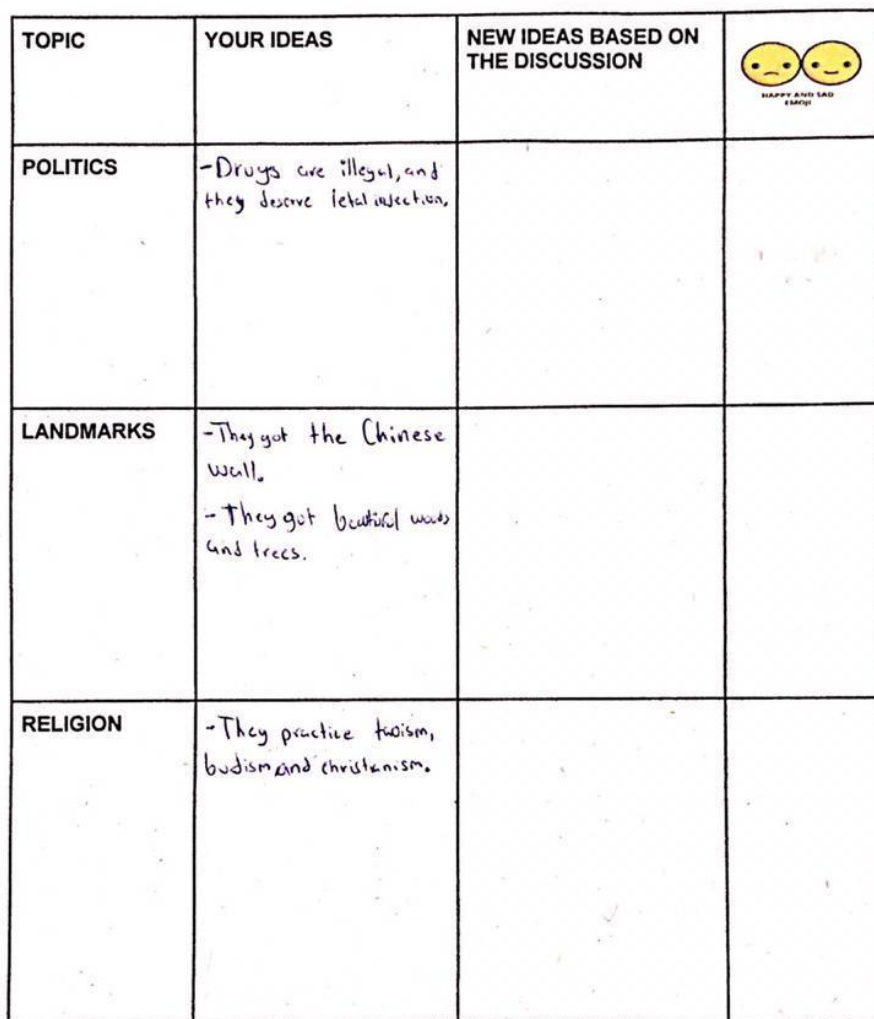 TOPIC
YOUR IDEAS
NEW IDEAS BASED ON
THE DISCUSSION
HAPPY AND SAD
EMOJI
POLITICS
-Drugs are illegal, and
they deserve letal injection.
LANDMARKS
-They got the Chinese
wall.
-They got beautiful woods
and trees.
RELIGION
-They practice taoism,
budism and christianism.